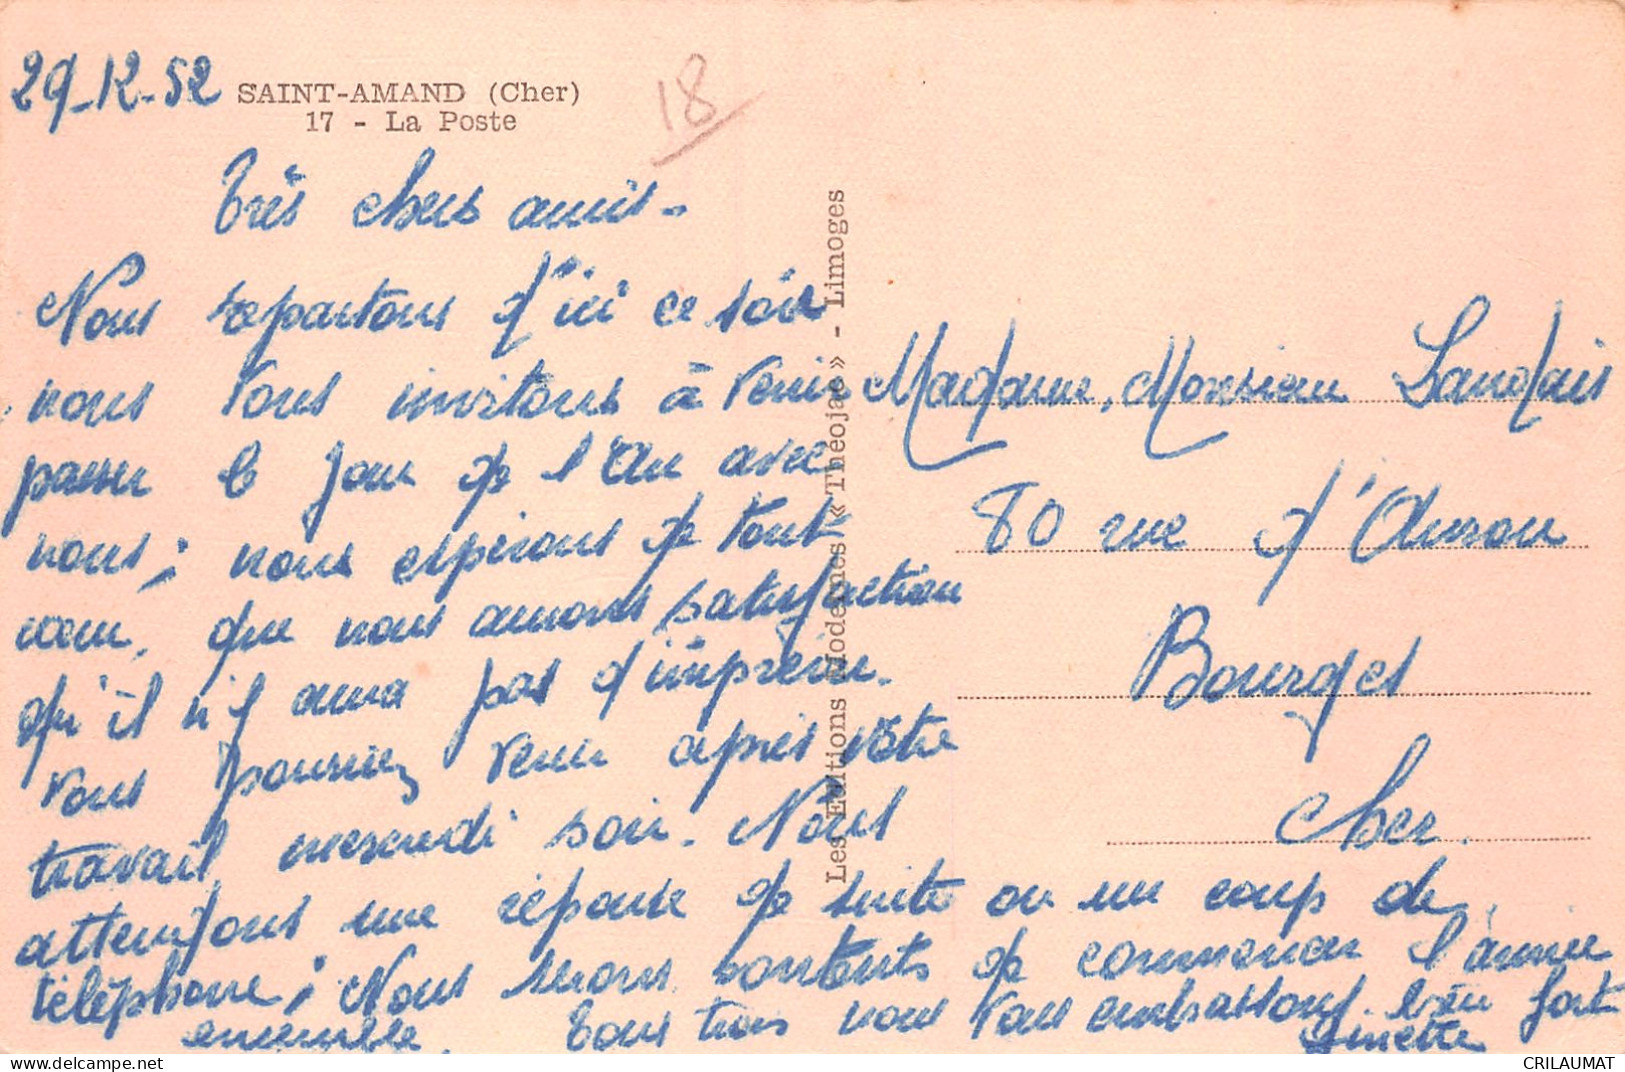 29-12-52
SAINT-AMAND (Cher)
17 - La Poste
18
Très chers amis-
Nous repartons d'ici ce soir
nous vous invitons à venir
passer le jour de l'An avec
nous; nous espérons de tout
cœur, que nous aurons satisfaction
qu'il n'y aura pas d'imprévu.
Vous pourriez venir après votre
travail mercredi soir. Nous
attendons une réponse de suite ou un coup de
téléphone; Nous serons contents de commencer l'année
ensemble. Tous trois nous vous embrassons bien fort
Ginette
Les Editions Modernes « Théojac » - Limoges
Madame, Monsieur Landais
80 rue d'Auron
Bourges
Cher.
CRILAUMAT